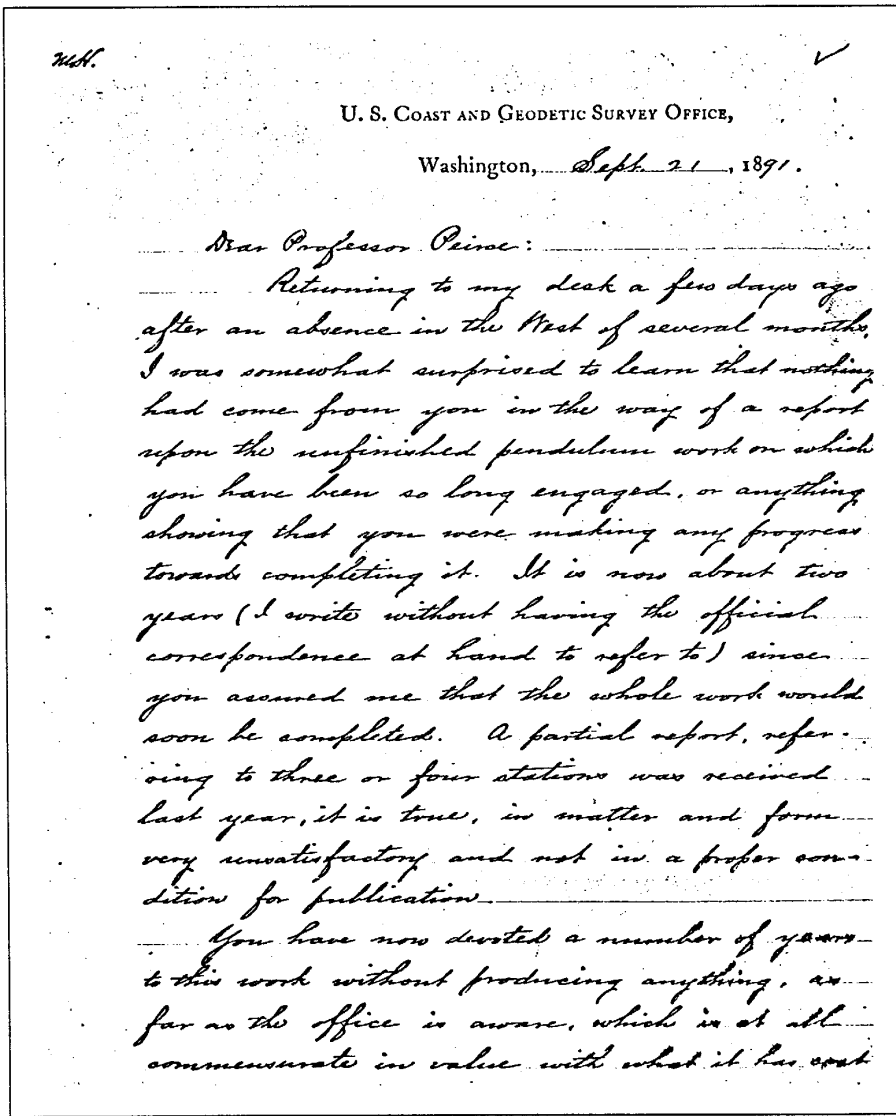 M.H.
U. S. COAST AND GEODETIC SURVEY OFFICE,
Washington, Sept. 21, 1891.
Dear Professor Peirce:
Returning to my desk a few days ago
after an absence in the West of several months,
I was somewhat surprised to learn that nothing
had come from you in the way of a report
upon the unfinished pendulum work on which
you have been so long engaged, or anything
showing that you were making any progress
towards completing it. It is now about two
years (I write without having the official
correspondence at hand to refer to) since
you assured me that the whole work would
soon be completed. A partial report, refer-
ring to three or four stations was received
last year, it is true, in matter and form
very unsatisfactory and not in a proper con-
dition for publication.
You have now devoted a number of years
to this work without producing anything, as
far as the office is aware, which is at all
commensurate in value with what it has cost